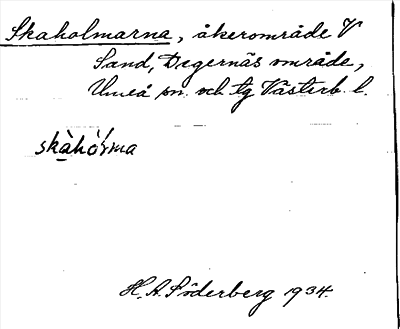 Skaholmarna, åkerområde V
Sand, Degernäs område,
Umeå sn. och tg Västerb. l.
skàhó̀ɫma
H. A. Söderberg 1934.